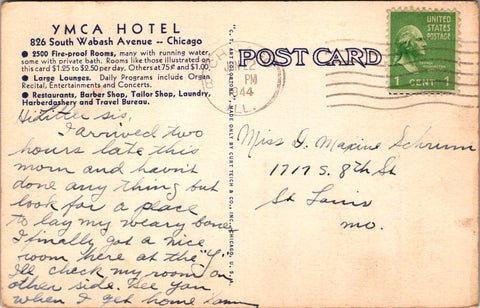 YMCA HOTEL
826 South Wabash Avenue -- Chicago
● 2500 Fire-proof Rooms, many with running water,
some with private bath. Rooms like those illustrated on
this card $1.25 to $2.50 per day. Others at 75¢ and $1.00.
● Large Lounges. Daily Programs include Organ
Recital, Entertainments and Concerts.
● Restaurants, Barber Shop, Tailor Shop, Laundry,
Harberdashery and Travel Bureau.
Hi sis,
I arrived two
hours late this
morn and havn't
done any thing but
look for a place
to lay my weary bone
I finally got a nice
room here at the "Y".
I'll check my room on
other side. See you
when I get home
"C. T. ART-COLORTONE" MADE ONLY BY CURT TEICH & CO., INC., CHICAGO, U. S. A.
POST CARD
PM
1944
ILL.
UNITED
STATES
POSTAGE
1 CENT 1
Miss D. Maxine Schrum
1717 S. 8th St
St Louis
Mo.